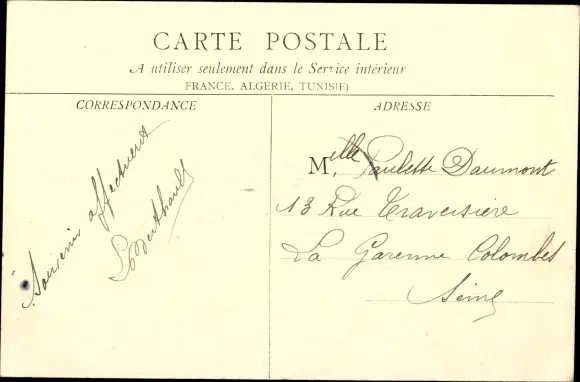 CARTE POSTALE
A utiliser seulement dans le Service intérieur
FRANCE. ALGÉRIE, TUNISIE)
CORRESPONDANCE
Souvenir affectueux
Berthault
ADRESSE
Melle Paulette Daumont
13 Rue Traversière
La Garenne Colombes
Seine